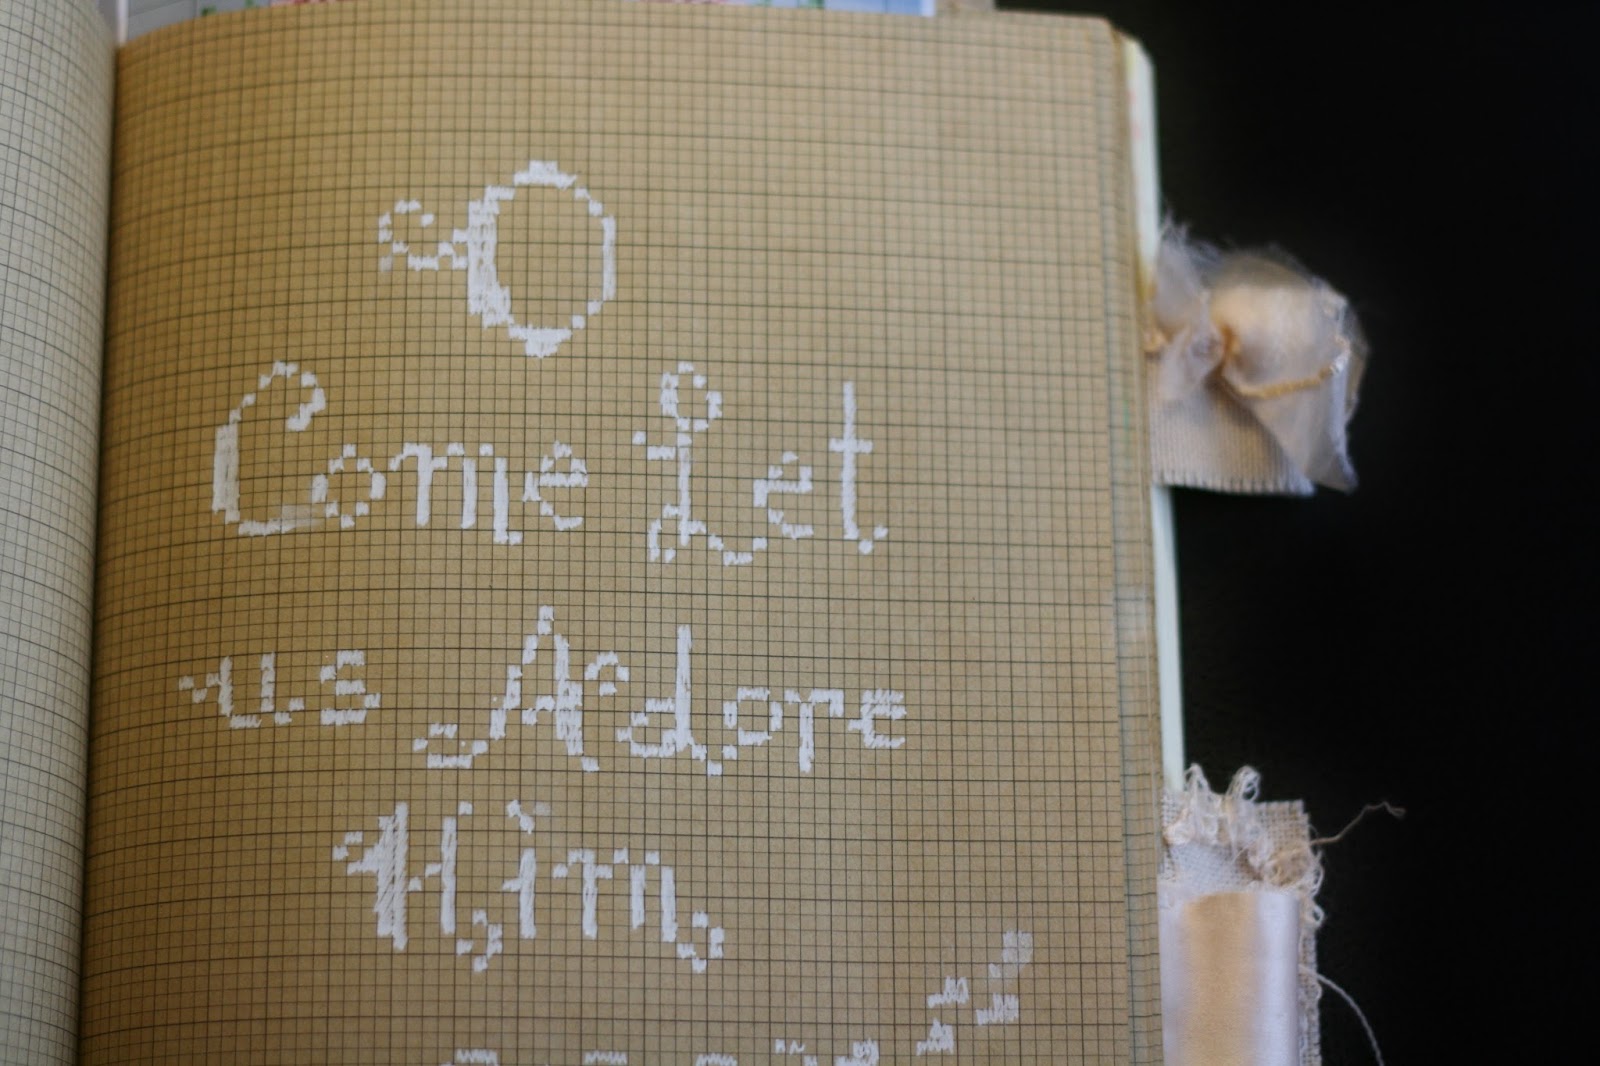 O
Come Let
us Adore
Him